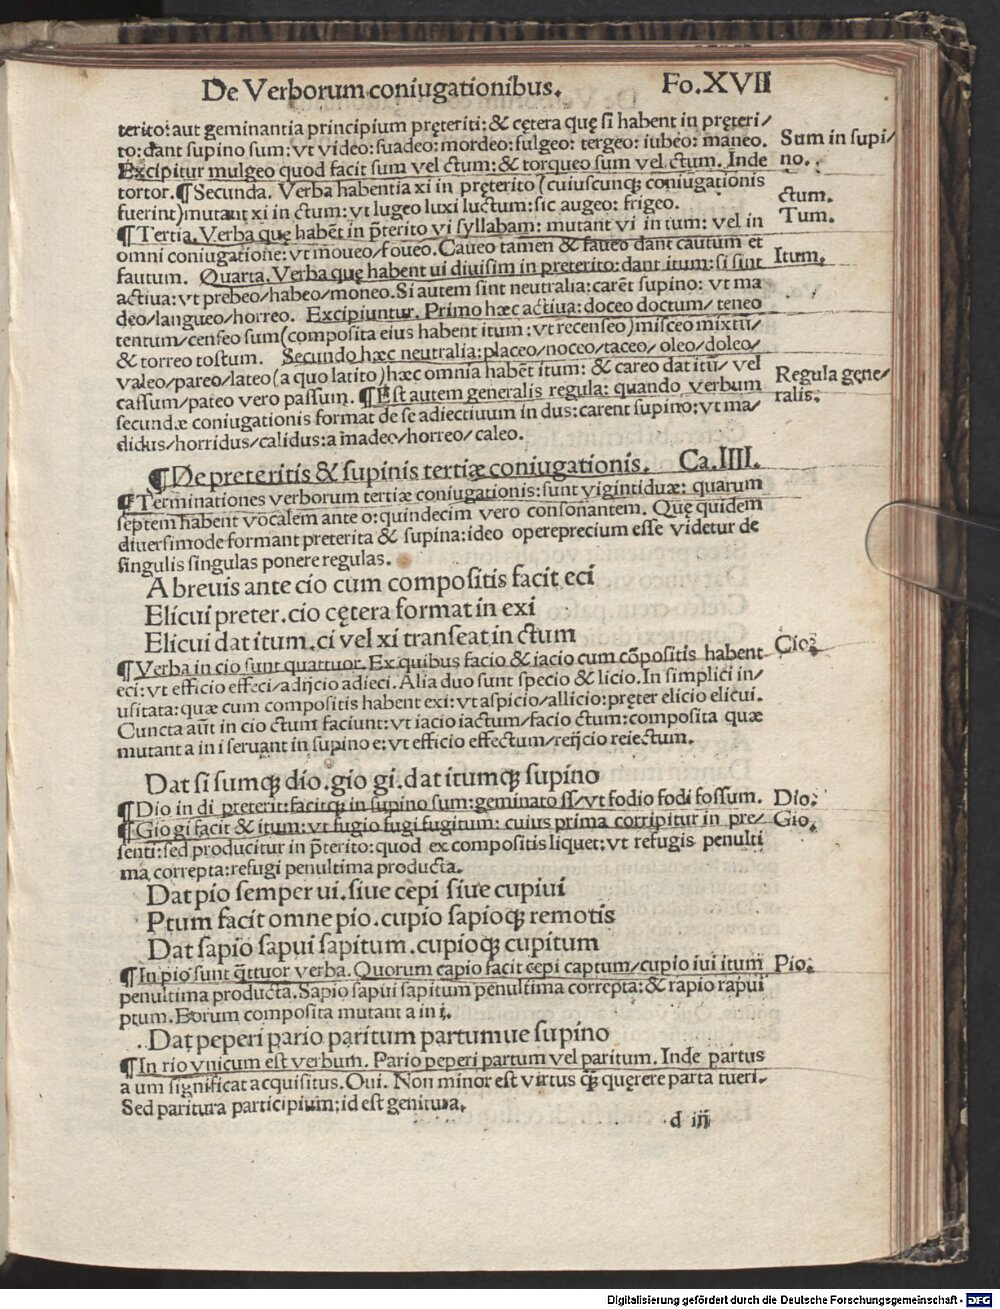 De Verborum coniugationibus. Fo.XVII
terito: aut geminantia principium pręteriti: & cętera quę si habent in pręteri/
to: dant supino sum: vt video: suadeo: mordeo: fulgeo: tergeo: iubeo: maneo.
Sum in supi/
Excipitur mulgeo quod facit sum vel ctum: & torqueo sum vel ctum. Inde
no.
tortor. ¶ Secunda. Verba habentia xi in pręterito (cuiuscunqꝫ coniugationis
ctum.
fuerint) mutant xi in ctum: vt lugeo luxi luctum: sic augeo: frigeo.
Tum.
¶ Tertia. Verba quę habēt in p̄terito vi syllabam: mutant vi in tum: vel in
omni coniugatione: vt moueo/foueo. Caueo tamen & faueo dant cautum et
Itum.
fautum. Quarta. Verba quę habent ui diuisim in preterito: dant itum: si sint
actiua: vt prebeo/habeo/moneo. Si autem sint neutralia: carēt supino: vt ma
deo/langueo/horreo. Excipiuntur. Primo hæc actiua: doceo doctum/ teneo
tentum/censeo sum (composita eius habent itum: vt recenseo) misceo mixtū/
& torreo tostum. Secundo hæc neutralia: placeo/noceo/taceo/ oleo/doleo/
valeo/pareo/lateo (a quo latito) hæc omnia habēt itum: & careo dat itū/ vel
Regula gęne/
cassum/pateo vero passum. ¶ Est autem generalis regula: quando verbum
ralis.
secundæ coniugationis format de se adiectiuum in dus: carent supino: vt ma/
didus/horridus/calidus: a madeo/horreo/ caleo.
¶ De preteritis & supinis tertiæ coniugationis. Ca.IIII.
¶ Terminationes verborum tertiæ coniugationis: sunt vigintiduæ: quarum
septem habent vocalem ante o: quindecim vero consonantem. Quę quidem
diuersimode formant preterita & supina: ideo opereprecium esse videtur de
singulis singulas ponere regulas.
A breuis ante cio cum compositis facit eci
Elicui preter. cio cętera format in exi
Elicui dat itum. ci vel xi transeat in ctum
Cio.
¶ Verba in cio sunt quattuor. Ex quibus facio & iacio cum cōpositis habent
eci: vt efficio effeci/adijcio adieci. Alia duo sunt specio & licio. In simplici in/
usitata: quæ cum compositis habent exi: vt aspicio/allicio: pręter elicio elicui.
Cuncta aūt in cio ctum faciunt: vt iacio iactum/facio ctum: composita quæ
mutant a in i seruant in supino e: vt efficio effectum/reijcio reiectum.
Dat si sumqꝫ dio. gio gi. dat itumqꝫ supino
¶ Dio in di preterit: facitqꝫ in supino sum: geminato ss/vt fodio fodi fossum.
Dio.
¶ Gio gi facit & itum: vt fugio fugi fugitum: cuius prima corripitur in pre/
Gio.
senti: sed producitur in p̄terito: quod ex compositis liquet: vt refugis penulti
ma correpta: refugi penultima producta.
Dat pio semper ui. siue cepi siue cupiui
Ptum facit omne pio. cupio sapioqꝫ remotis
Dat sapio sapui sapitum. cupioqꝫ cupitum
¶ In pio sunt q̄ttuor verba. Quorum capio facit cepi captum/cupio iui itum
Pio.
penultima producta. Sapio sapui sapitum penultima correpta: & rapio rapui
ptum. Eorum composita mutant a in i.
Dat peperi pario paritum partumue supino
¶ In rio vnicum est verbum. Pario peperi partum vel paritum. Inde partus
a um significat acquisitus. Oui. Non minor est virtus q̄ꝫ quęrere parta tueri.
Sed paritura participium: id est genitura.
d iij
Digitalisierung gefördert durch die Deutsche Forschungsgemeinschaft - DFG